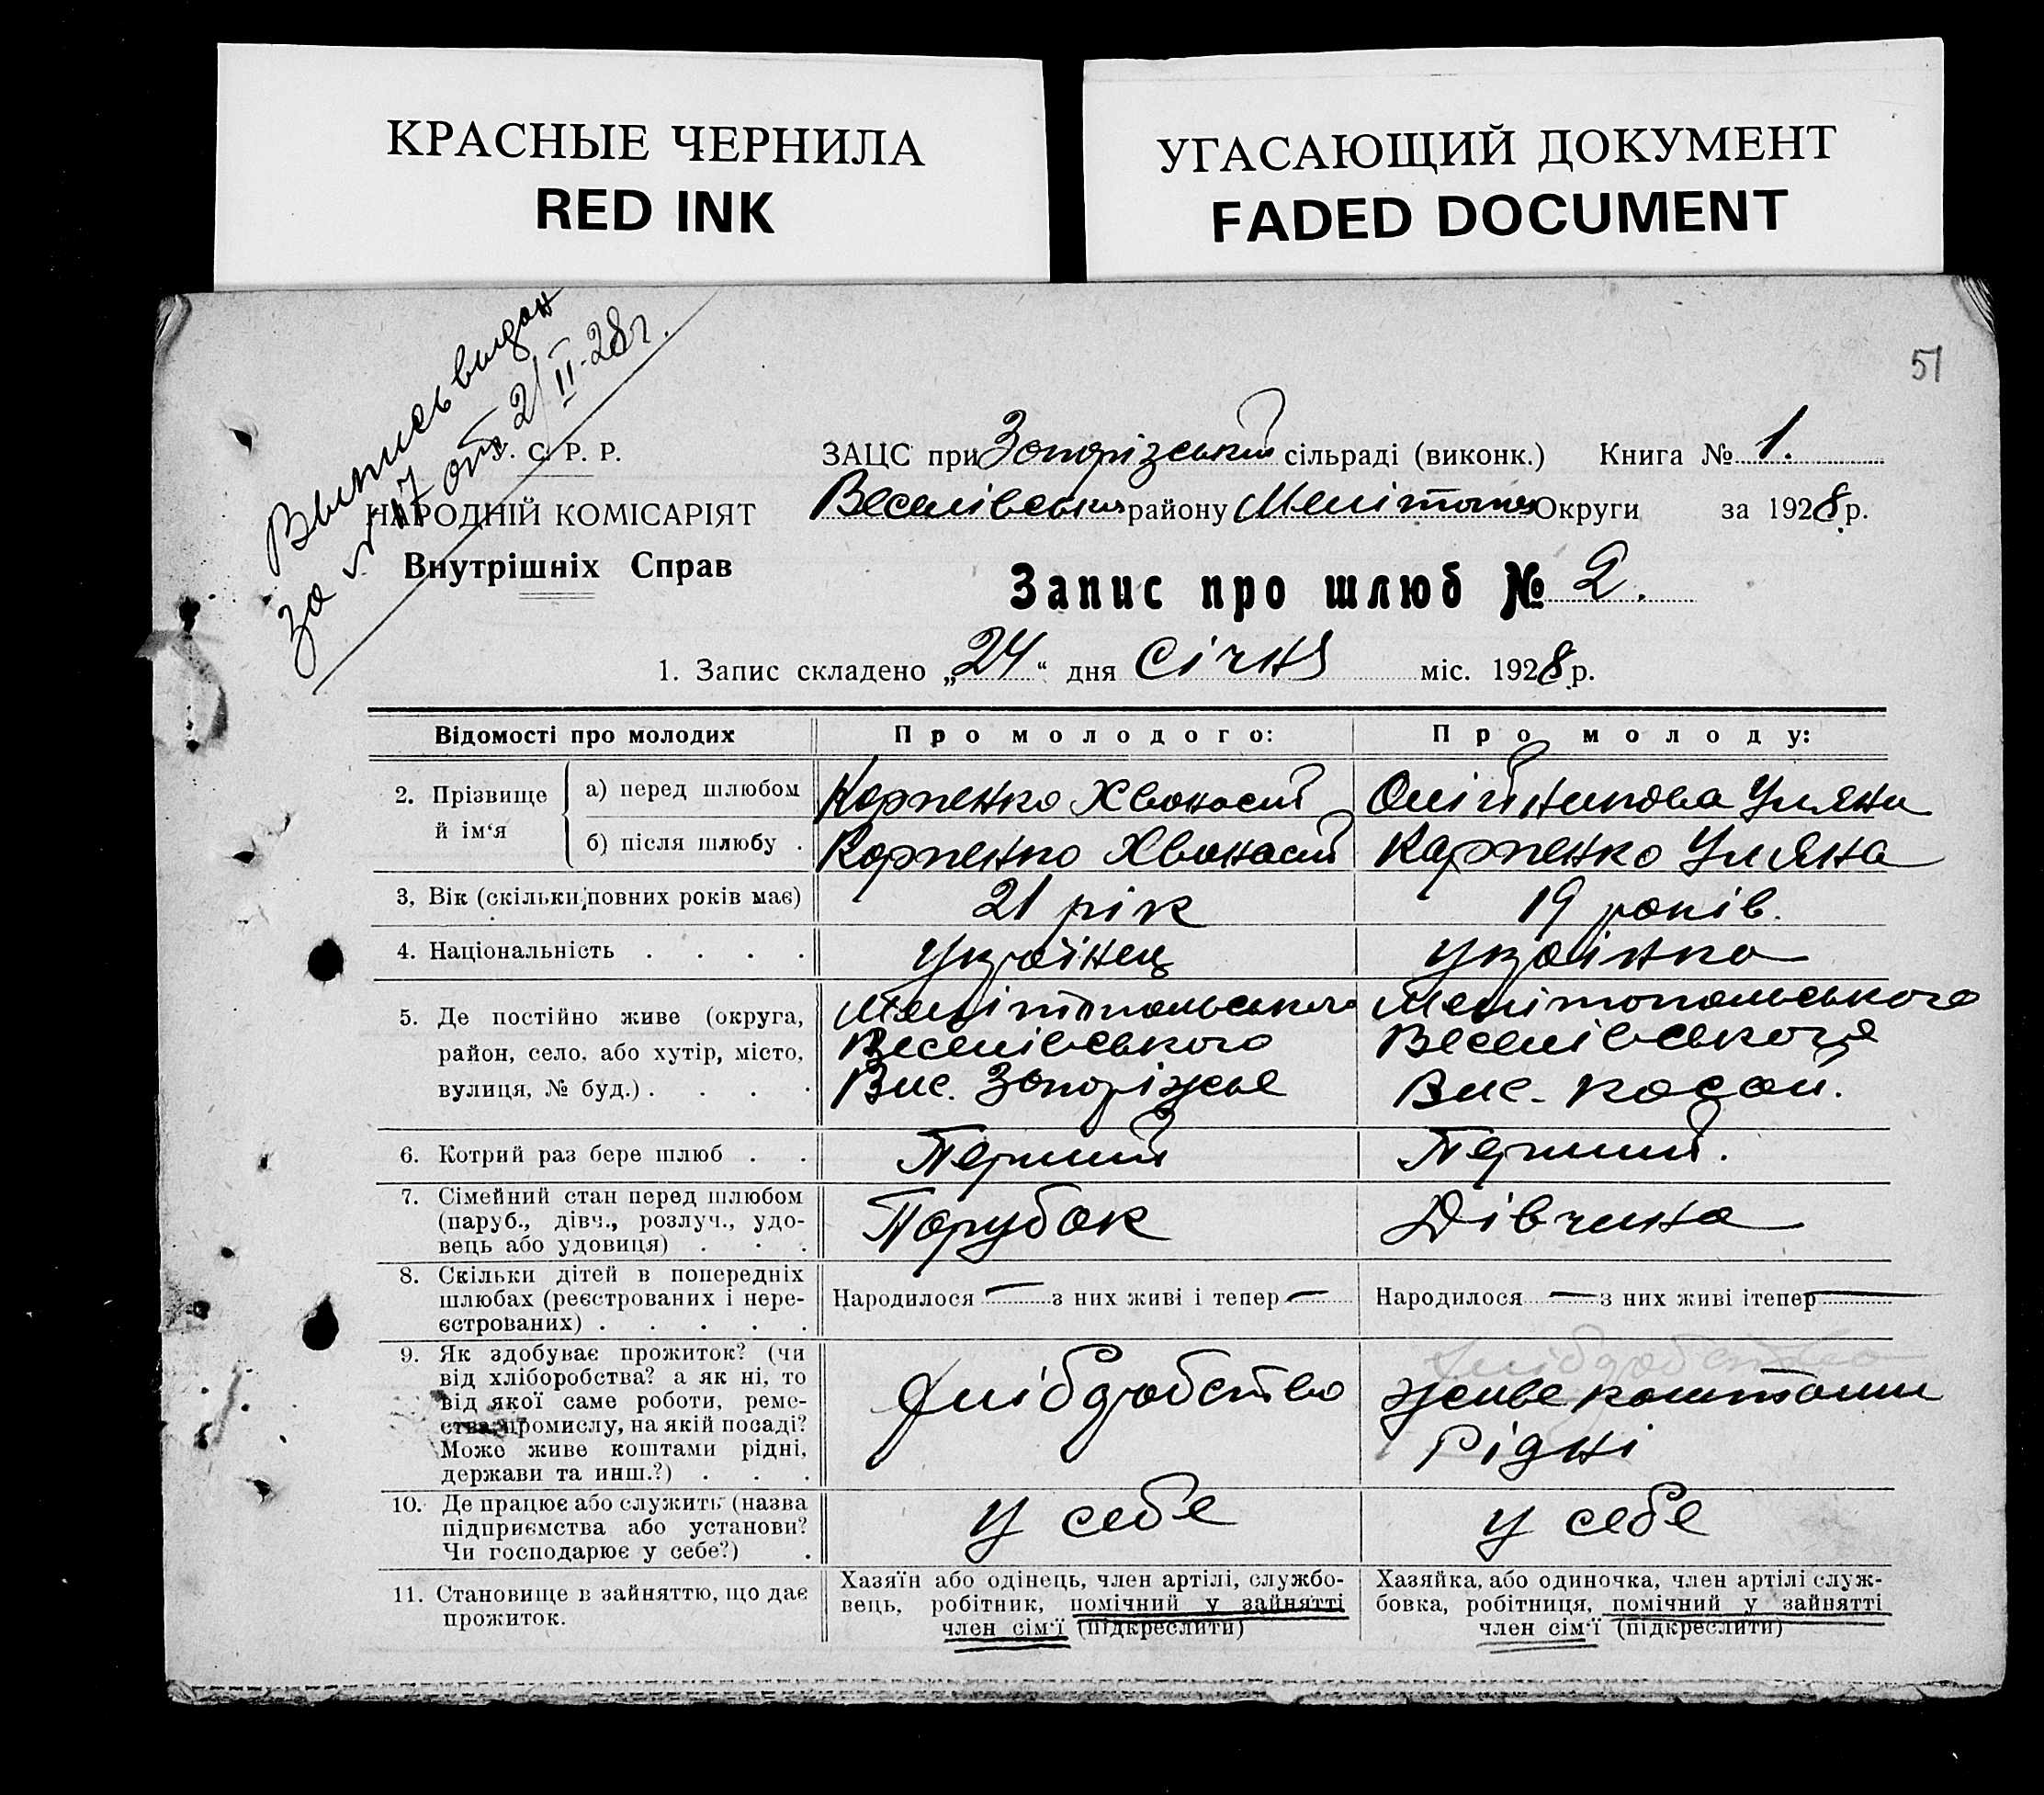 КРАСНЫЕ ЧЕРНИЛА
RED INK
УГАСАЮЩИЙ ДОКУМЕНТ
FADED DOCUMENT
51
Выпись выдан
за № 17 от 2/II-28 г.
У. С. Р. Р.
НАРОДНІЙ КОМІСАРІЯТ
Внутрішніх Справ
ЗАЦС при Запорізький сільраді (виконк.) Книга № 1.
Веселівського району Меліт Округи за 1928 р.
Запис про шлюб № 2.
1. Запис складено „24“ дня Січня міс. 1928 р.
Відомості про молодих
Про молодого:
Про молоду:
2. Прізвище й ім‘я
а) перед шлюбом
Карпенко Хванасий
Олійникова Уляна
б) після шлюбу .
Карпенко Хванасий
Карпенко Уляна
3, Вік (скільки повних років має)
21 рік
19 років.
4. Національність . . . .
українец
українка
5. Де постійно живе (округа,
район, село, або хутір, місто,
вулиця, № буд.) . . . .
Мелітопольського
Веселівського
Вис. Запоріжье
Мелітопольського
Веселівського
Вис.
6. Котрий раз бере шлюб . .
Перший
Перший.
7. Сімейний стан перед шлюбом
(паруб., дівч., розлуч., удо-
вець або удовиця) . . .
Парубок
Дівчина
8. Скільки дітей в попередніх
шлюбах (реєстрованих і нере-
єстрованих) . . . . .
Народилося — з них живі і тепер —
Народилося — з них живі ітепер —
9. Як здобуває прожиток? (чи
від хліборобства? а як ні, то
від якої саме роботи, реме-
ства, промислу, на якій посаді?
Може живе коштами рідні,
держави та инш.?) . . .
хлібдобство
хлібдобство
живе коштами
Рідні
10. Де працює або служить (назва
підприємства або установи?
Чи господарює у себе?) .
у себе
у себе
11. Становище в зайняттю, що дає
прожиток.
Хазяїн або одінець, член артілі, службо-
вець, робітник, помічний у зайнятті
член сім‘ї (підкреслити)
Хазяйка, або одиночка, член артілі служ-
бовка, робітниця, помічний у зайнятті
член сім‘ї (підкреслити)